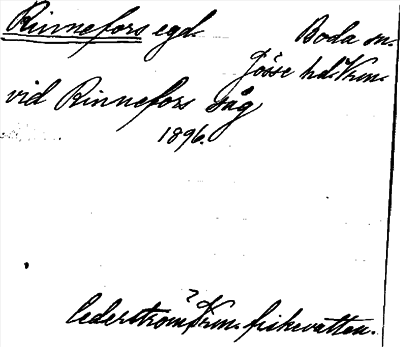 Rinnefors egd.
Boda sn.
Jösse hd. Vrm.
vid Rinnefors såg
1896.
Cederström Vrm. fiskevatten.